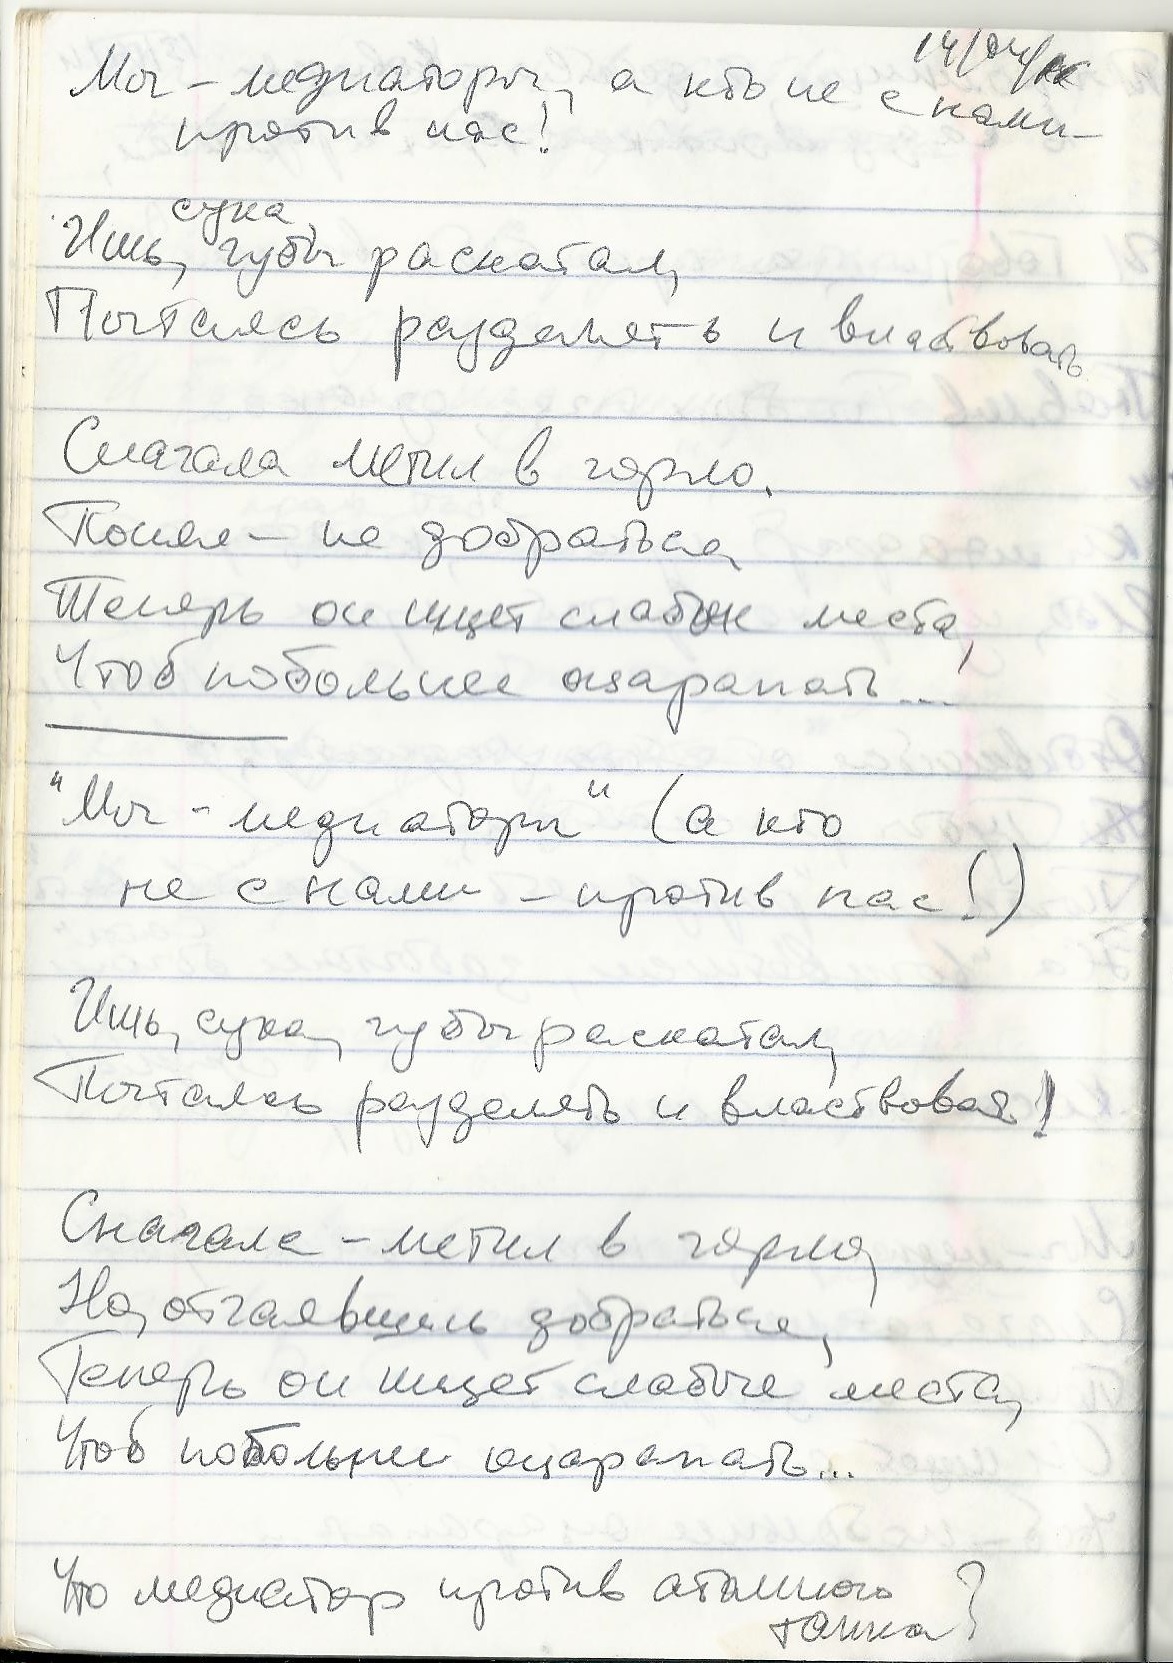 14/04/16
Мы – медиаторы, а кто не с нами –
против нас!
сука,
Ишь, губы раскатал,
Пытаясь разделять и властвовать
Сначала метил в горло.
Понял – не добраться,
Теперь он ищет слабые места,
Чтоб побольнее оцарапать...
"Мы – медиаторы" (а кто
не с нами – против нас!)
Ишь, сука, губы раскатал,
Пытаясь разделять и властвовать!
Сначала – метил в горло,
Но, отчаявшись добраться,
Теперь он ищет слабые места,
Чтоб побольнее оцарапать...
Что медиатор против атомного
танка?